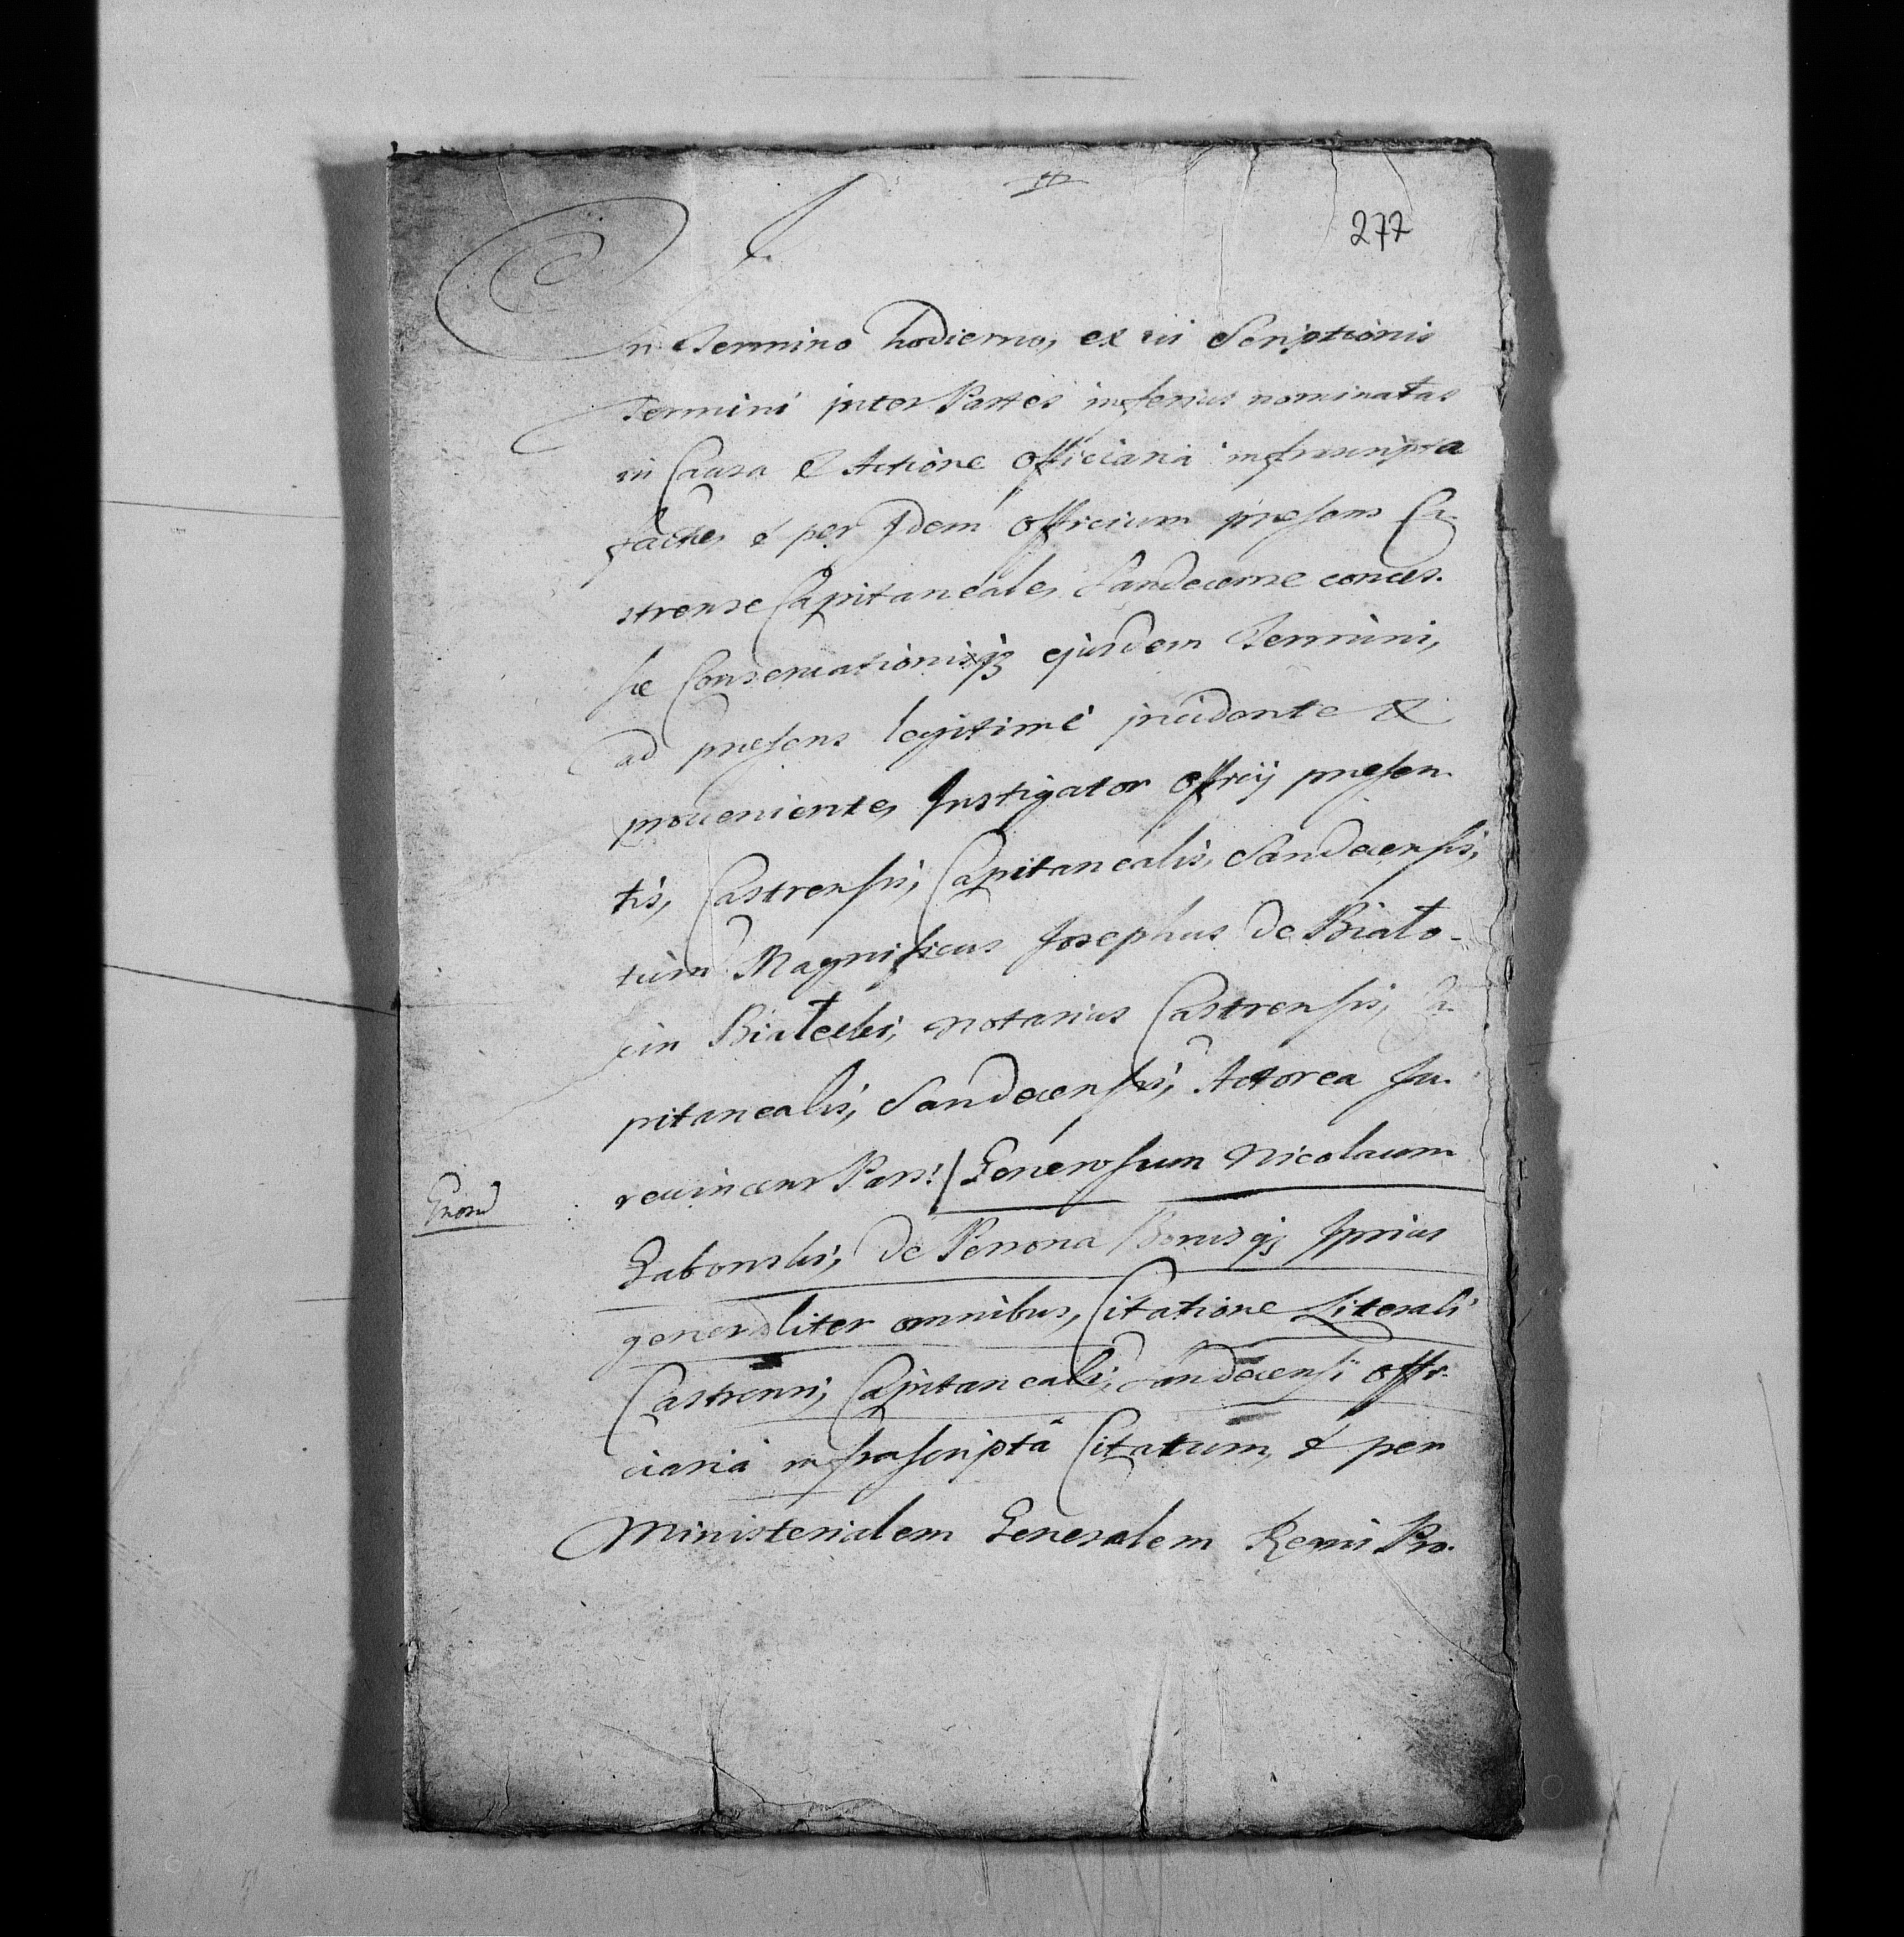 277
In Termino hodierno, ex vi Scriptionis
Termini inter Partes inferius nominatas
in Causa & Actione officiaria infrascripta
factæ, & per Idem officium præsens Ca-
strense Capitaneale, Sandecense conces-
sæ Conservationisq3 ejusdem Termini,
ad præsens legitimè incidente &
proveniente, Instigator officij præsen-
tis, Castrensis, Capitanealis, Sandecensis,
tùm Magnificus Josephus de Biało-
Białecki, Notarius Castrensis, Ca-
pitanealis, Sandecensis, Actorea
Pars! / Generosum Nicolaum
de Persona Bonisq3 Ipsius
generaliter omnibus, Citatione Literali
Castrensi, Capitaneali, Sandecensi offi-
ciaria infrascriptâ Citatum, & per
Ministerialem Generalem Regni Pro-